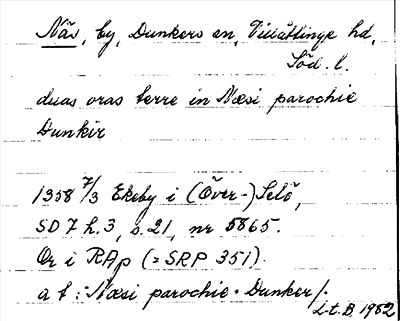 Näs, by, Dunkers sn, Villåttinge hd,
Söd. l.
duas oras terre in Næsi parochie
Dunkir
1358 7/3 Ekeby i (Över-) Selö,
SD 7 h. 3, s. 21, nr 5865.
Or i RAp (= SRP 351).
a t: Næsi parochie · Dunker/.
L.t.B. 1962